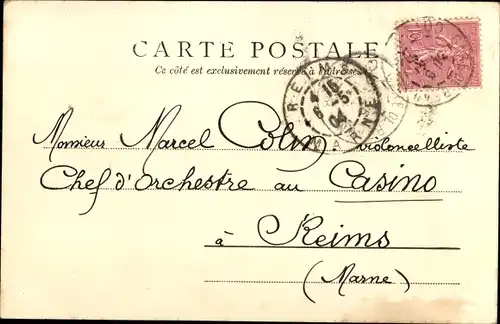 CARTE POSTALE
Ce côté est exclusivement réservé à l'adresse
REIMS
6-5
04
MARNE
Monsieur Marcel Colin violoncelliste
Chef d'Orchestre au Casino
à Reims
(Marne)